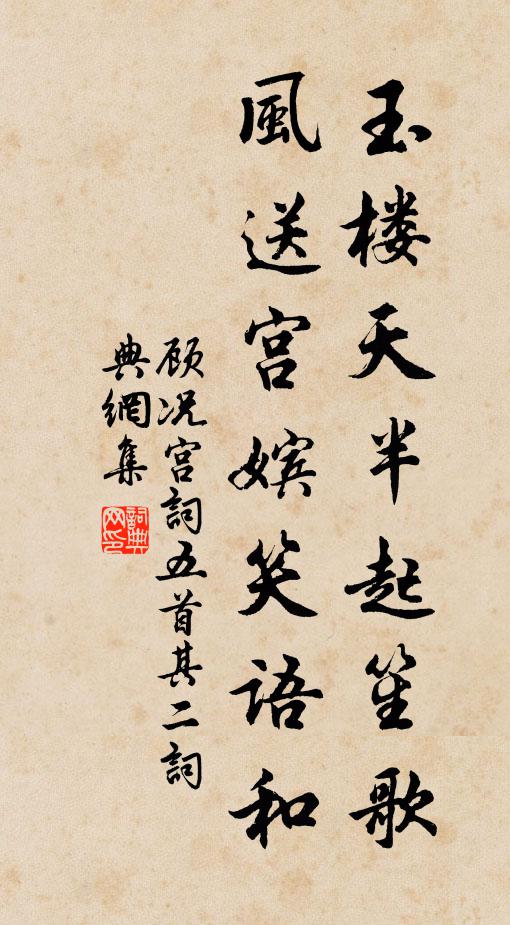 玉楼天半起笙歌
風送宫嬪笑語和
顾况宫詞五首其二詞
典網集
詞典网印